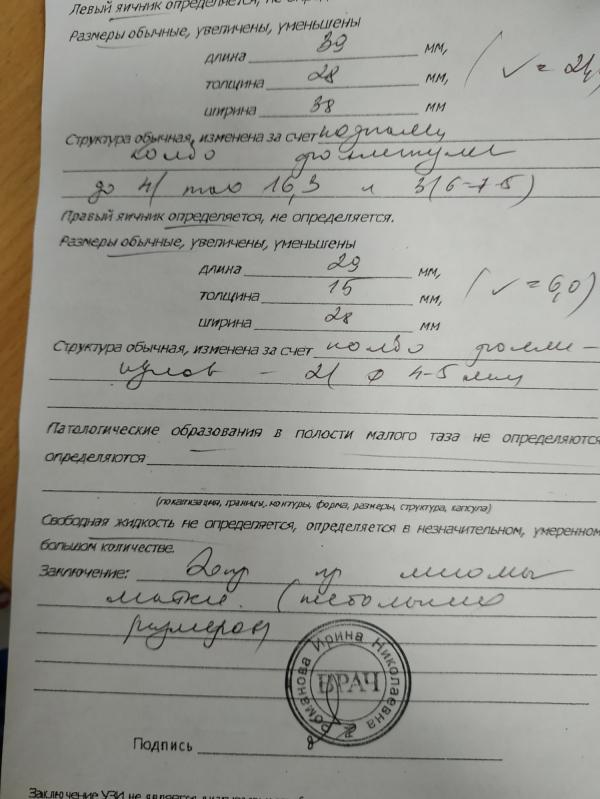 Левый яичник определяется, не
Размеры обычные, увеличены, уменьшены
длина 39 мм,
толщина 28 мм, (V = 21,
ширина 38 мм
Структура обычная, изменена за счет
кол-во
до 4/ 16,3 и 3/6-7-5)
Правый яичник определяется, не определяется.
Размеры обычные, увеличены, уменьшены
длина 29 мм,
толщина 15 мм, (V = 6,0)
ширина 28 мм
Структура обычная, изменена за счет кол-во фолли-
кулов - 2/ ф 4-5 мм
Патологические образования в полости малого таза не определяются
определяются
(локализация, границы, контуры, форма, размеры, структура, капсула)
Свободная жидкость не определяется, определяется в незначительном, умеренном
большом количестве.
Заключение: миомы
матки. (небольших
размеров)
Романова Ирина Николаевна
ВРАЧ
Подпись
Заключение УЗИ не является